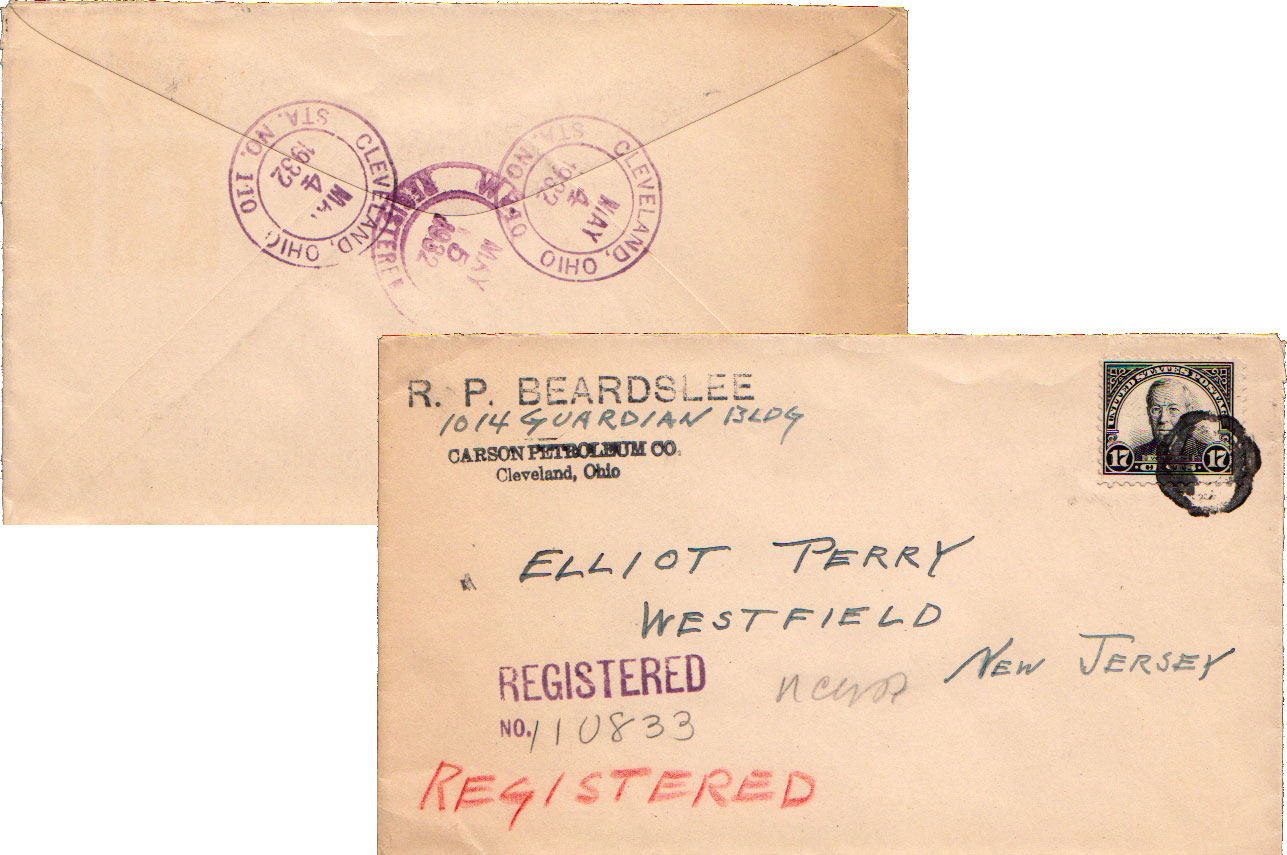 CLEVELAND, OHIO
STA. NO. 110
MAY
4
1932
REGISTERED
MAY
5
1932
CLEVELAND, OHIO
STA. NO.
MAY
4
1932
R. P. BEARDSLEE
1014 GUARDIAN BLDG
CARSON PETROLEUM CO.
Cleveland, Ohio
UNITED STATES POSTAGE
17 CENTS 17
ELLIOT PERRY
WESTFIELD
NEW JERSEY
REGISTERED
NO. 110833
REGISTERED